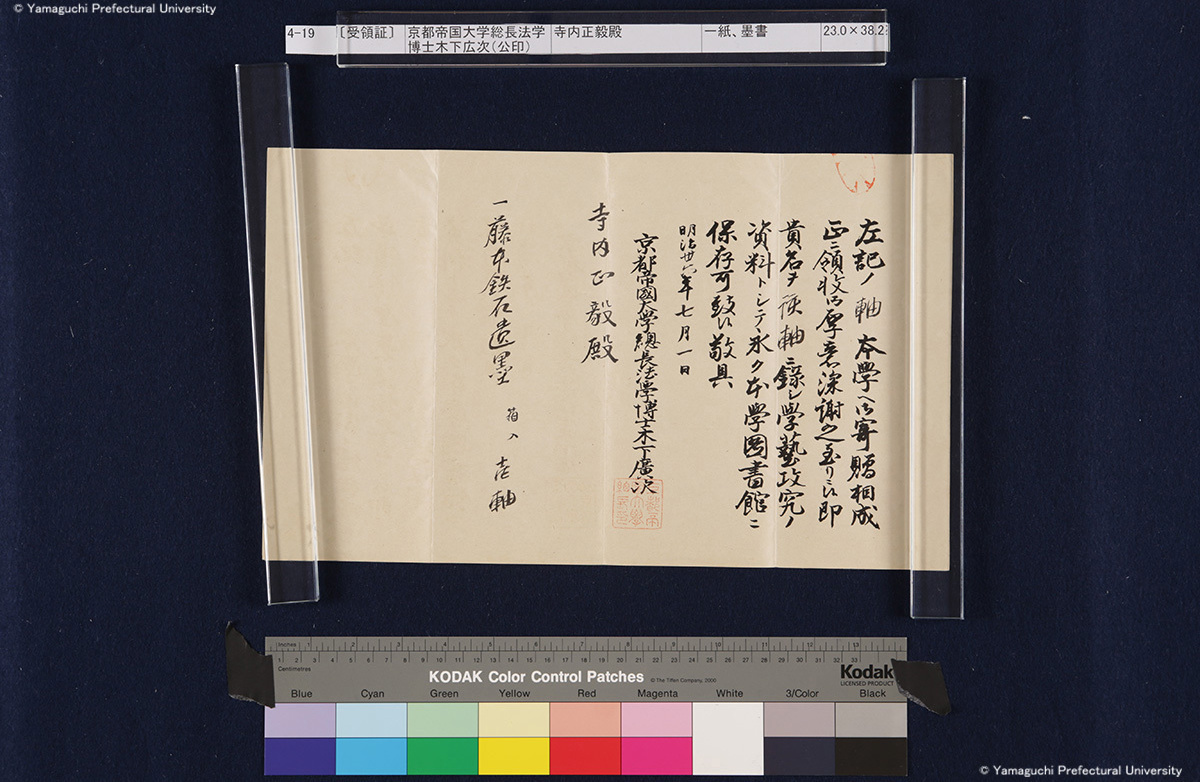 © Yamaguchi Prefectural University
4-19
〔受領証〕
京都帝国大学総長法学
博士木下広次(公印)
寺内正毅殿
一紙、墨書
23.0×38.2
左記ノ軸本學ヘ御寄贈相成
正ニ領收御厚意深謝之至リニ候即
貴名ヲ該軸ニ錄シ學藝攻究ノ
資料トシテ永ク本學圖書館ニ
保存可致候敬具
明治卅六年七月一日
京都帝國大學總長法學博士木下廣次
寺内正毅殿
一藤本鉄石遺墨 箱入 壱軸
Inches 1 2 3 4 5 6 7 8 9 10 11 12 13
Centimetres
KODAK Color Control Patches
© The Tiffen Company, 2000
Kodak
LICENSED PRODUCT
Blue Cyan Green Yellow Red Magenta White 3/Color Black
© Yamaguchi Prefectural University